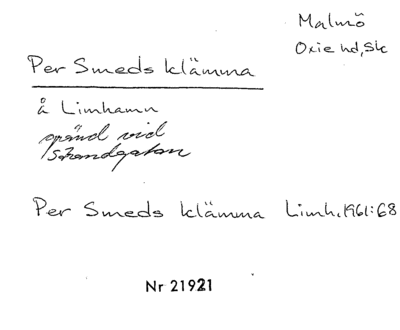 Malmö
Oxie hd, Sk
Per Smeds klämma
å Limhamn
gränd vid
Strandgatan
Per Smeds klämma Limh. 1961:68
Nr 21921